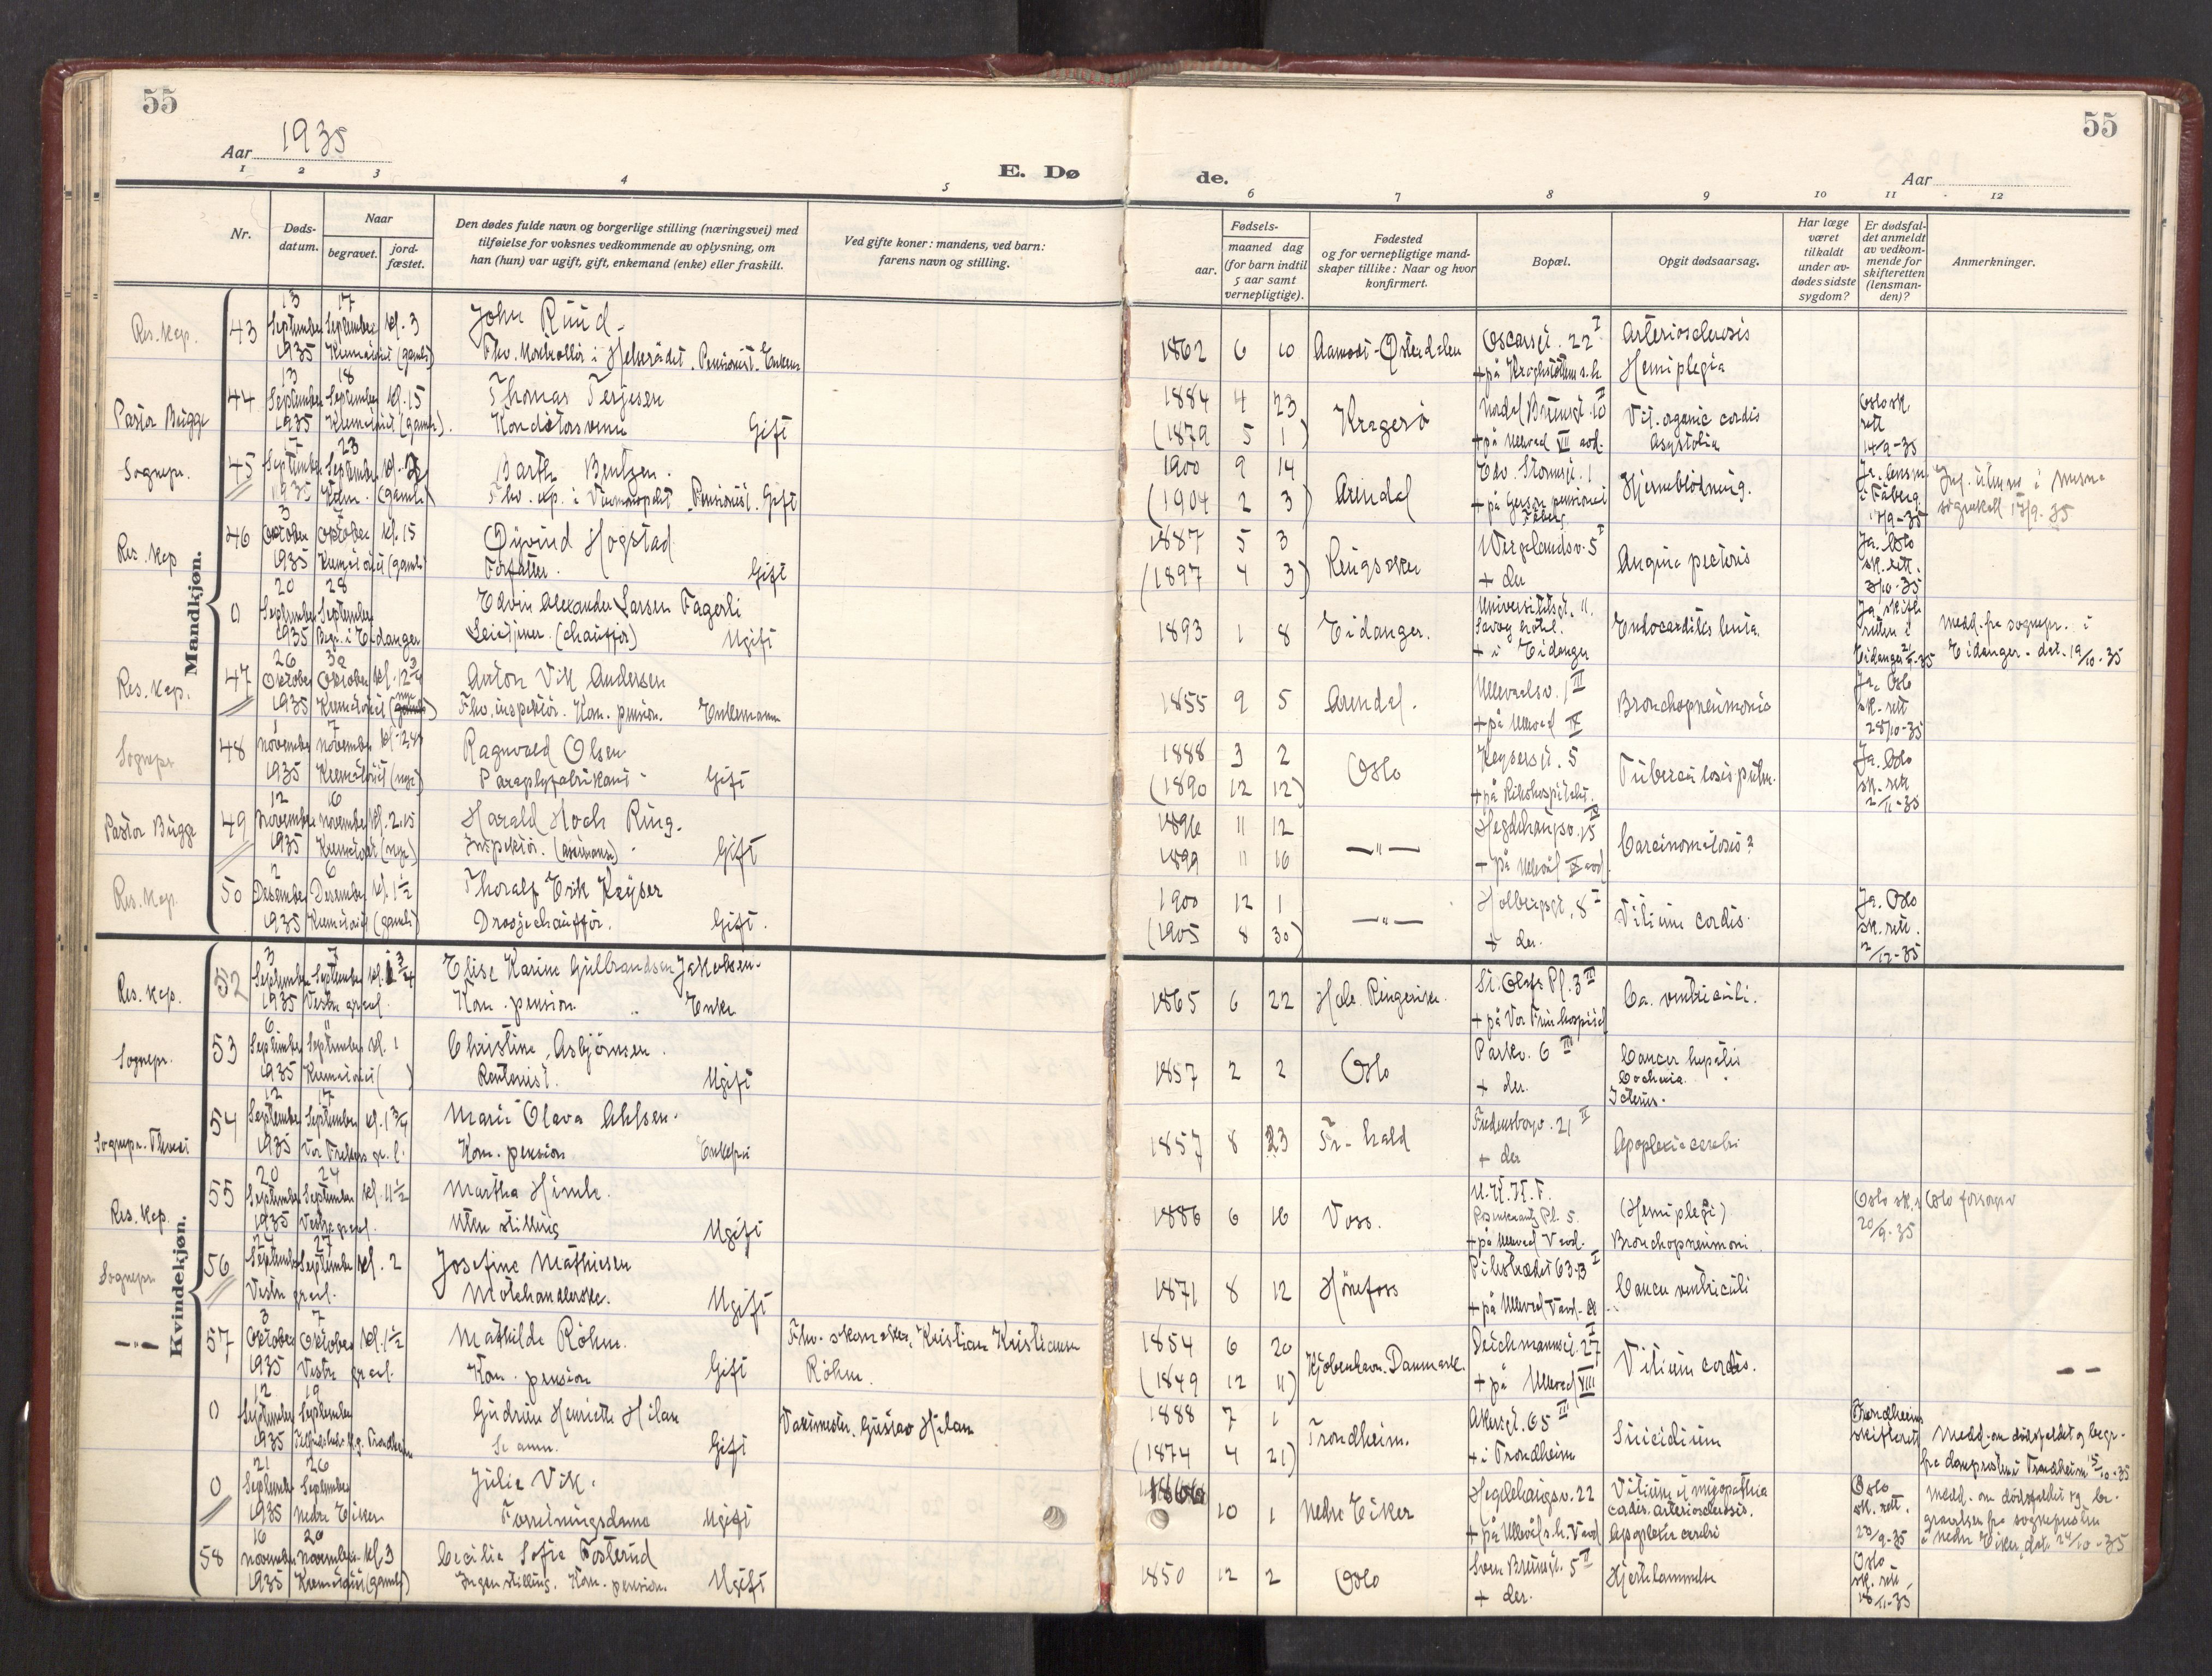 55
55
Aar 1935
E. Dø
de.
Aar
1 2 3 4 5
6 7 8 9 10 11 12
Nr.
Døds-
datum.
Naar
begravet.
jord-
fæstet.
Den dødes fulde navn og borgerlige stilling (næringsvei) med
tilføielse for voksnes vedkommende av oplysning, om
han (hun) var ugift, gift, enkemand (enke) eller fraskilt.
Ved gifte koner: mandens, ved barn:
farens navn og stilling.
Fødsels-
aar. maaned dag
(for barn indtil
5 aar samt
vernepligtige).
Fødested
og for vernepligtige mand-
skaper tillike: Naar og hvor
konfirmert.
Bopæl.
Opgit dødsaarsag.
Har læge
været
tilkaldt
under av-
dødes sidste
sygdom?
Er dødsfal-
det anmeldt
av vedkom-
mende for
skifteretten
(lensman-
den)?
Anmerkninger.
Mandkjøn.
Res. kap. 43
13 September 1935
17 September kl. 3
Krematoriet (gamle)
John Ruud
Pensionist.
1862 6 10
Aamodt-Østerdalen
Oscarsgt. 22 I
Arteriosclerosis
Hemiplegia
Pastor Bugge 44
13 September 1935
18 September kl. 15
Krematoriet (gamle).
Thomas Terjesen
Gift
1884 4 23
(1879 5 1)
Kragerø
+ på Ullevål VII avd.
Vit. organic cordis
Asystolia
Oslo sk.
rett
14/9-35
Sognepr. 45
7 September 1935
23 September
Krem. (gamle)
Barth Bentzen.
Pensionist. Gift
1900 9 14
(1904 2 3)
Arendal
Edv. Stormsgt. 1
Hjerneblødning.
Ja. lensm.
i Fåberg
17/9-35
Res. kap 46
3 Oktober 1935
7 Oktober kl. 15
Krematoriet (gamle)
Øyvind Hogstad
Forfatter. Gift
1887 5 3
(1897 4 3)
Ringsaker
Wergelandsv. 5 I
+ der
Angina pectoris
Ja. Oslo
sk. rett.
3/10-35
0
20 September 1935
28 September
Begr. i Eidanger
Edvin Alexander Larsen Fagerli
(chauffør) Ugift
1893 1 8
Eidanger.
Universitetsgt. 11.
Savoy hotel.
+ i Eidanger
Endocarditis lenta.
Ja skifte
retten i
Eidanger
Medd. fra sognepr. i
Eidanger. dat. 19/10-35
Res. kap. 47
26 Oktober 1935
30 Oktober
Krematoriet
Anton Vik Andersen
Fhv. inspektør. Kom. pension. Enkemann
1855 9 5
Arendal.
Ullevålsv. 1 III
+ på Ullevål IV
Bronchopneumonia
Ja, Oslo
sk. rett
28/10-35
Sognepr 48
1 November 1935
7 November
Krematoriet (nye)
Ragnvald Olsen
Paraplyfabrikant Gift
1888 3 2
(1890 12 12)
Oslo
Keysersgt. 5
+ på Rikshospitalet.
Tuberculosis pulm.
Ja. Oslo
sk. rett
2/11-35
Pastor Bugge 49
12 November 1935
16 November kl. 2.15
Krematoriet (nye)
Harald Hoch Ring.
Inspektør. (assuranse) Gift
1896 11 12
1899 11 16
— " —
Hegdehaugsv. 15
Carcinomatosis?
Res. kap. 50
2 Desember 1935
6 Desember kl. 1 1/2
Krematoriet (gamle)
Thoralf Erik Keyser
Drosjechauffør. Gift.
1900 12 1
(1905 8 30)
— " —
Holbergsgt. 8 I
+ der.
Vitium cordis.
Ja. Oslo
sk. rett.
2/12-35
Kvindekjøn.
Res. kap. 52
3 September 1935
7 September
Vestre gravl.
Elise Karine Gulbrandsen Jakobsen
Kom. pension Enke
1865 6 22
Hole. Ringerike.
St. Olafs Pl. 3 III
+ på Vor Frue hospital
Ca. ventriculi.
Sognepr. 53
6 September 1935
11 September kl. 1
Krematoriet ( )
Christine Asbjørnsen.
Rentenist. Ugift
1857 2 2
Oslo
Parkv. 6 III
+ der.
Cancer hepatis
Icterus.
Sognepr. 54
12 September 1935
17 September kl. 1 3/4
Vor Frelsers gr. l.
Marie Olava Ahlsen.
Kom. pension
1857 8 23
Fr.hald
Fredensborgv. 21 II
+ der
Apoplexia cerebri
Res. kap. 55
20 September 1935
24 September kl. 11 1/2
Vestre gravl.
Martha Himle.
Uten stilling Ugift
1886 6 16
Voss.
K.F.
Rosenkrantz Pl. 5.
+ på Ullevål V avd.
(Hemiplegi)
Bronchopneumoni
20/9-35
Sognepr 56
24 September
27 September kl. 2
Vestre gravl.
Josefine Mathiesen
Motehandlerske. Ugift
1871 8 12
Hønefoss
Pilestrædet 63 B I
Cancer ventriculi
— " — 57
3 Oktober 1935
7 Oktober kl. 1 1/2
Vestre gravl.
Mathilde Røhm.
Kom. pension Gift
Fhv. skomaker, Kristian Kristiansen
Røhm.
1854 6 20
(1849 12 11)
Kjøbenhavn. Danmark.
Deichmannsgt. 27 I
+ på Ullevål VIII
Vitium cordis.
0
12 September 1935
19 September
Gudrun Henriette Hilan
Gift
Gustav Hilan
1888 7 1
(1874 4 21)
Trondheim.
Akersgt. 65 III
+ i Trondheim
Suicidium
Trondheim
skifterett
Medd. om dødsfaldet og begr.
fra domprosten i Trondheim 15/10-35
0
21 September 1935
26 September
Nedre Eiker
Julie Vik.
Forretningsdame Ugift
1866 10 1
Nedre Eiker
Hegdehaugsv. 22
Apoplexia cerebri
Oslo
sk. rett.
Medd. om dødsfaldet og be-
gravelsen fra sognepresten
i Nedre Eiker, dat. 24/10-35
58
16 November 1935
20 November kl. 3
Krematoriet (gamle)
Cecilie Sofie Fosterud
Ingen stilling. Kom. pension Ugift
1850 12 2
Oslo
5 II
+ der.
Hjertelammelse
Oslo
sk. rett,
18/11-35